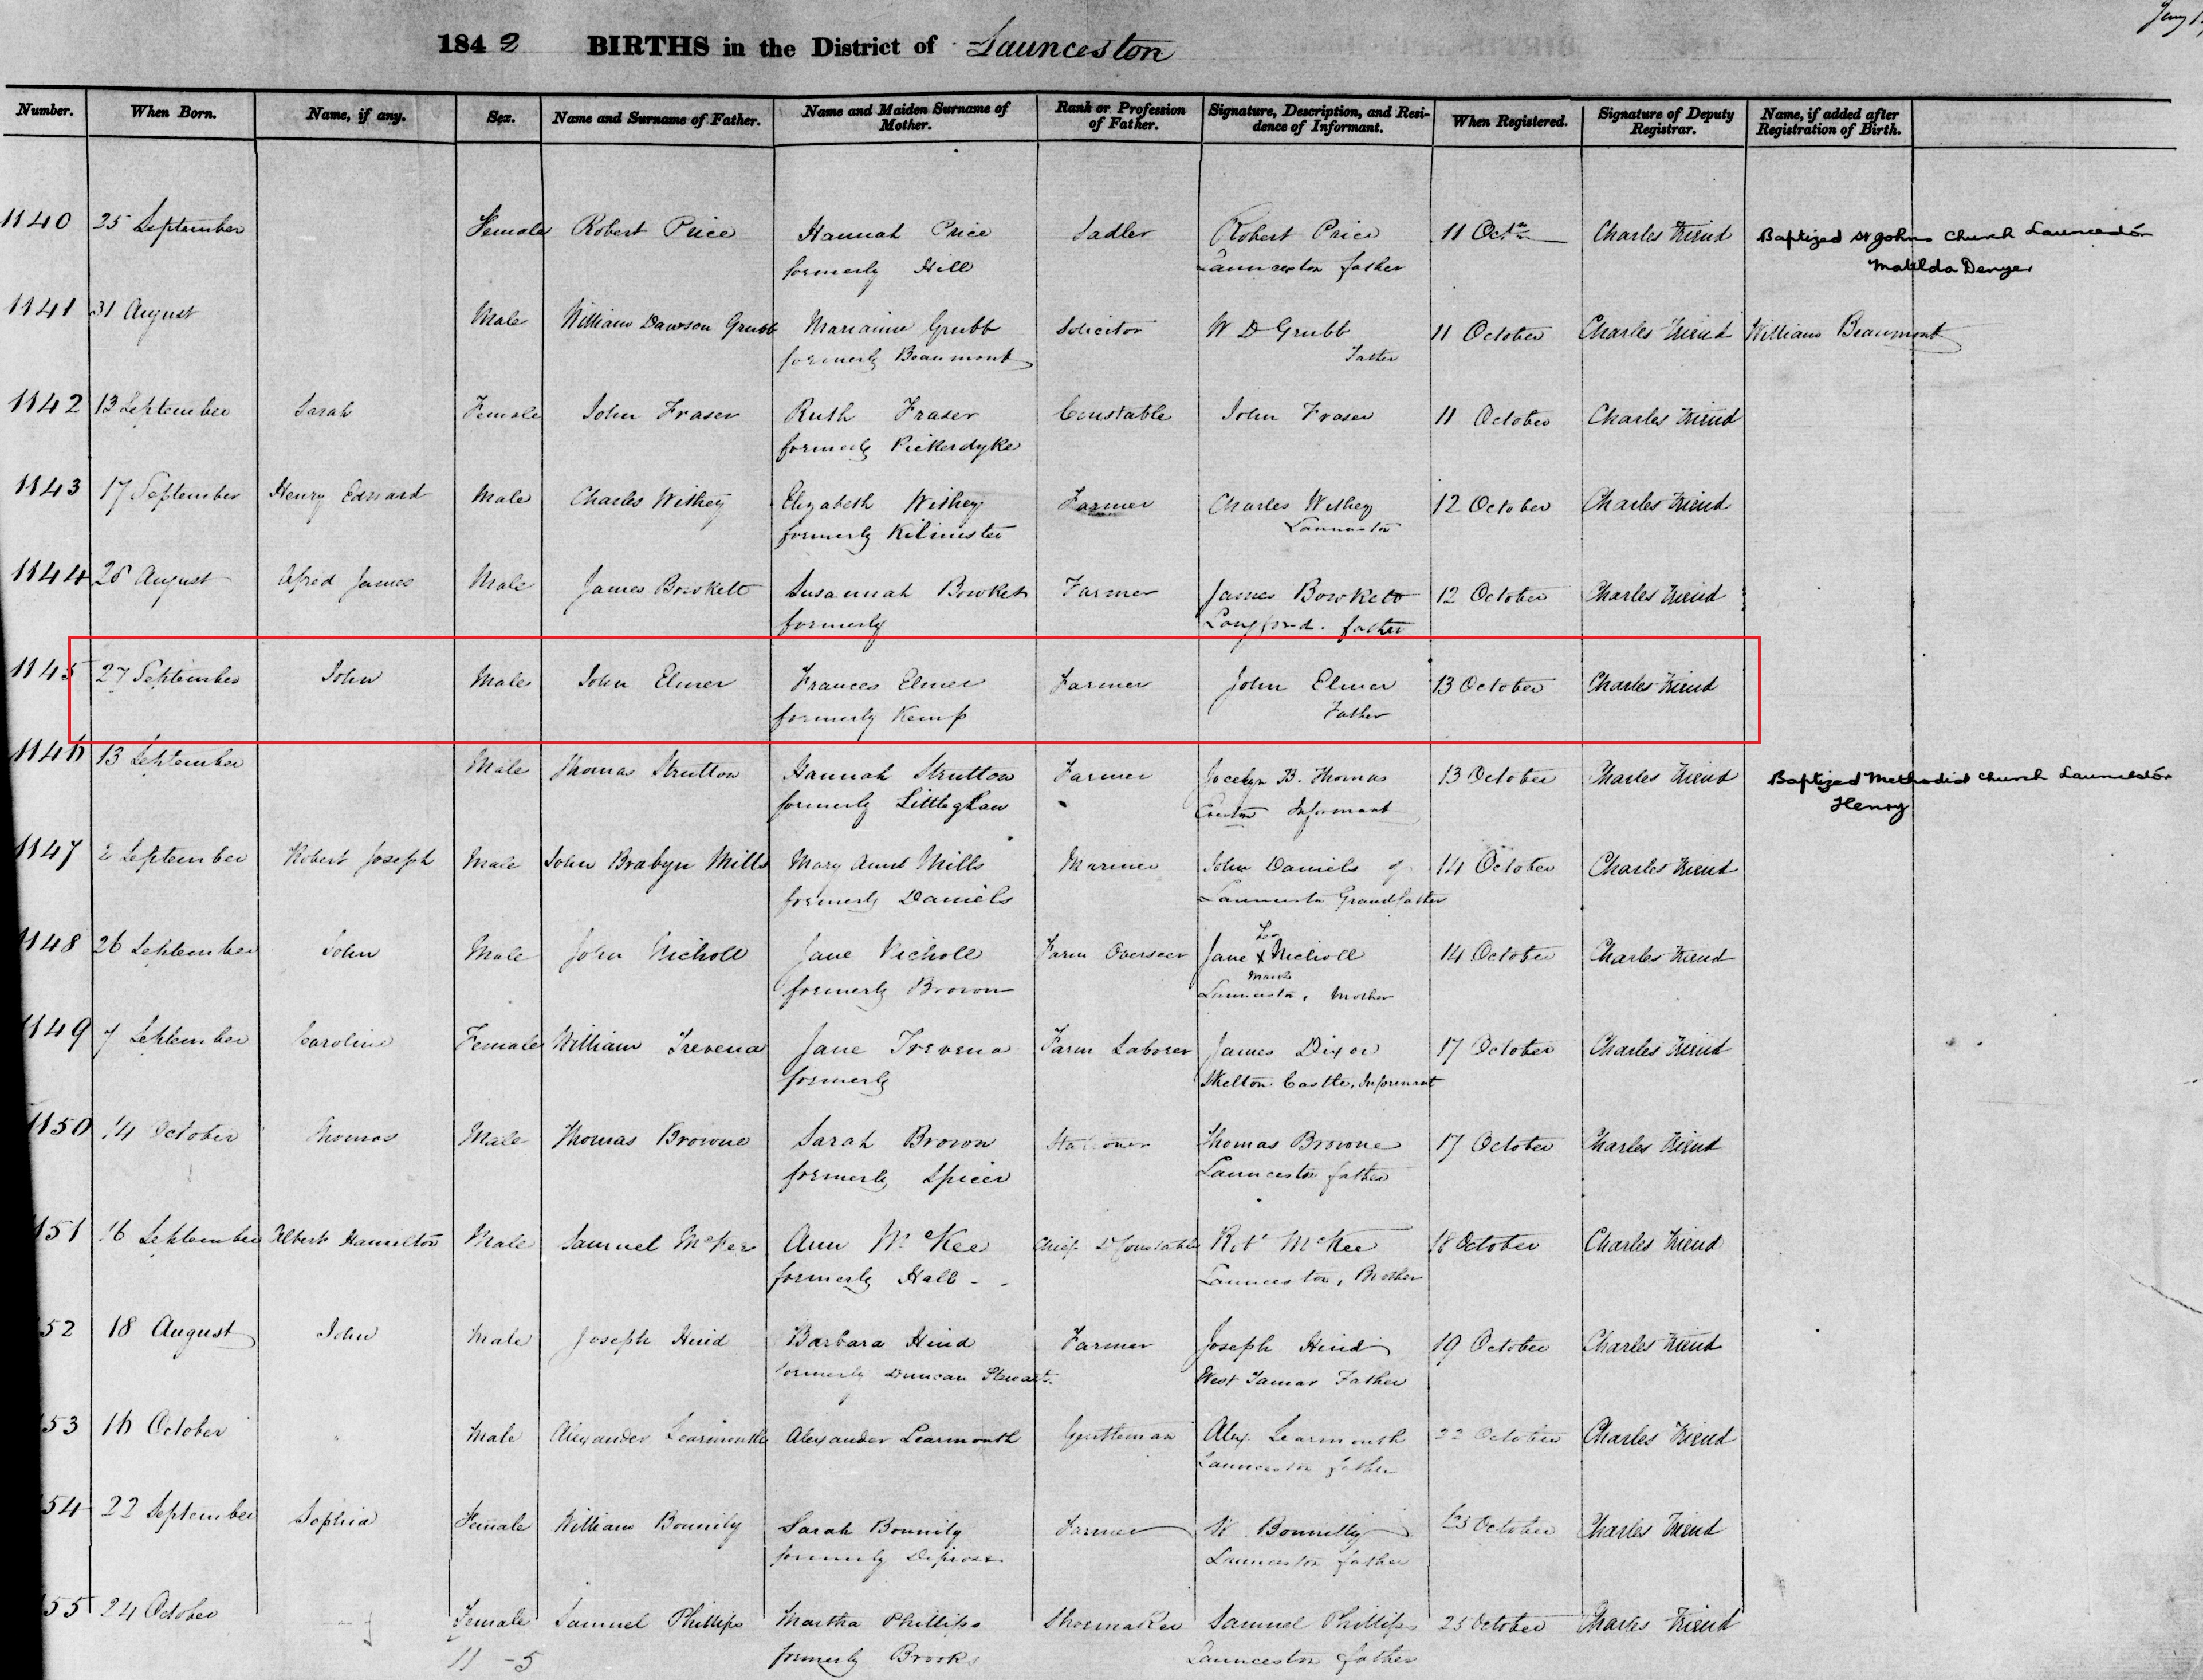 1842 BIRTHS in the District of Launceston
Number. When Born. Name, if any. Sex. Name and Surname of Father. Name and Maiden Surname of Mother. Rank or Profession of Father. Signature, Description, and Residence of Informant. When Registered. Signature of Deputy Registrar. Name, if added after Registration of Birth.
1140 25 September Female Robert Price Hannah Price Sadler Robert Price 11 Octr Charles Friend Baptized St Johns Church Launceston
formerly Hill Launceston father Matilda Denyer
1141 31 August Male William Dawson Grubb Marianne Grubb Solicitor W D Grubb 11 October Charles Friend William Beaumont
formerly Beaumont Father
1142 13 September Sarah Female John Fraser Ruth Fraser Constable John Fraser 11 October Charles Friend
formerly Pickerdyke
1143 17 September Henry Edward Male Charles Withey Elizabeth Withey Farmer Charles Withey 12 October Charles Friend
formerly Kilminster Launceston
1144 28 August Alfred James Male James Bowkett Susannah Bowket Farmer James Bowkett 12 October Charles Friend
formerly Longford. father
1145 27 September John Male John Elmer Frances Elmer Farmer John Elmer 13 October Charles Friend
formerly Kemp Father
1146 13 September Male Thomas Strutton Hannah Strutton Farmer Jocelyn B. Thomas 13 October Charles Friend Baptized Methodist Church Launceston
formerly Informant Henry
1147 2 September Robert Joseph Male John Brabyn Mills Mary Ann Mills Mariner John Daniels of 14 October Charles Friend
formerly Daniels Launceston Grandfather
1148 26 September John Male John Nicholl Jane Nicholl Farm Overseer Jane X Nicholl 14 October Charles Friend
her mark
formerly Brown Launceston, Mother
1149 7 September Caroline Female William Trevena Jane Trevena Farm Laborer James Dixon 17 October Charles Friend
formerly Skelton Castle, Informant
1150 14 October Thomas Male Thomas Browne Sarah Brown Stationer Thomas Browne 17 October Charles Friend
formerly Spicer Launceston father
151 16 September Albert Hamilton Male Samuel McKee Ann McKee Chief D Constable Robt McKee 18 October Charles Friend
formerly Hall - - Launceston, Brother
52 18 August John Male Joseph Hind Barbara Hind Farmer Joseph Hind 19 October Charles Friend
formerly Duncan Stewart West Tamar Father
53 16 October Male Alexander Learmonth Alexander Learmonth Gentleman Alex. Learmonth 22 October Charles Friend
Launceston father
54 22 September Sophia Female William Bonnily Sarah Bonnily Farmer W Bonnilly 23 October Charles Friend
formerly Diprose Launceston father
55 24 October Female Samuel Phillips Martha Phillips Shoemaker Samuel Phillips 25 October Charles Friend
11 - 5 formerly Brooks Launceston father